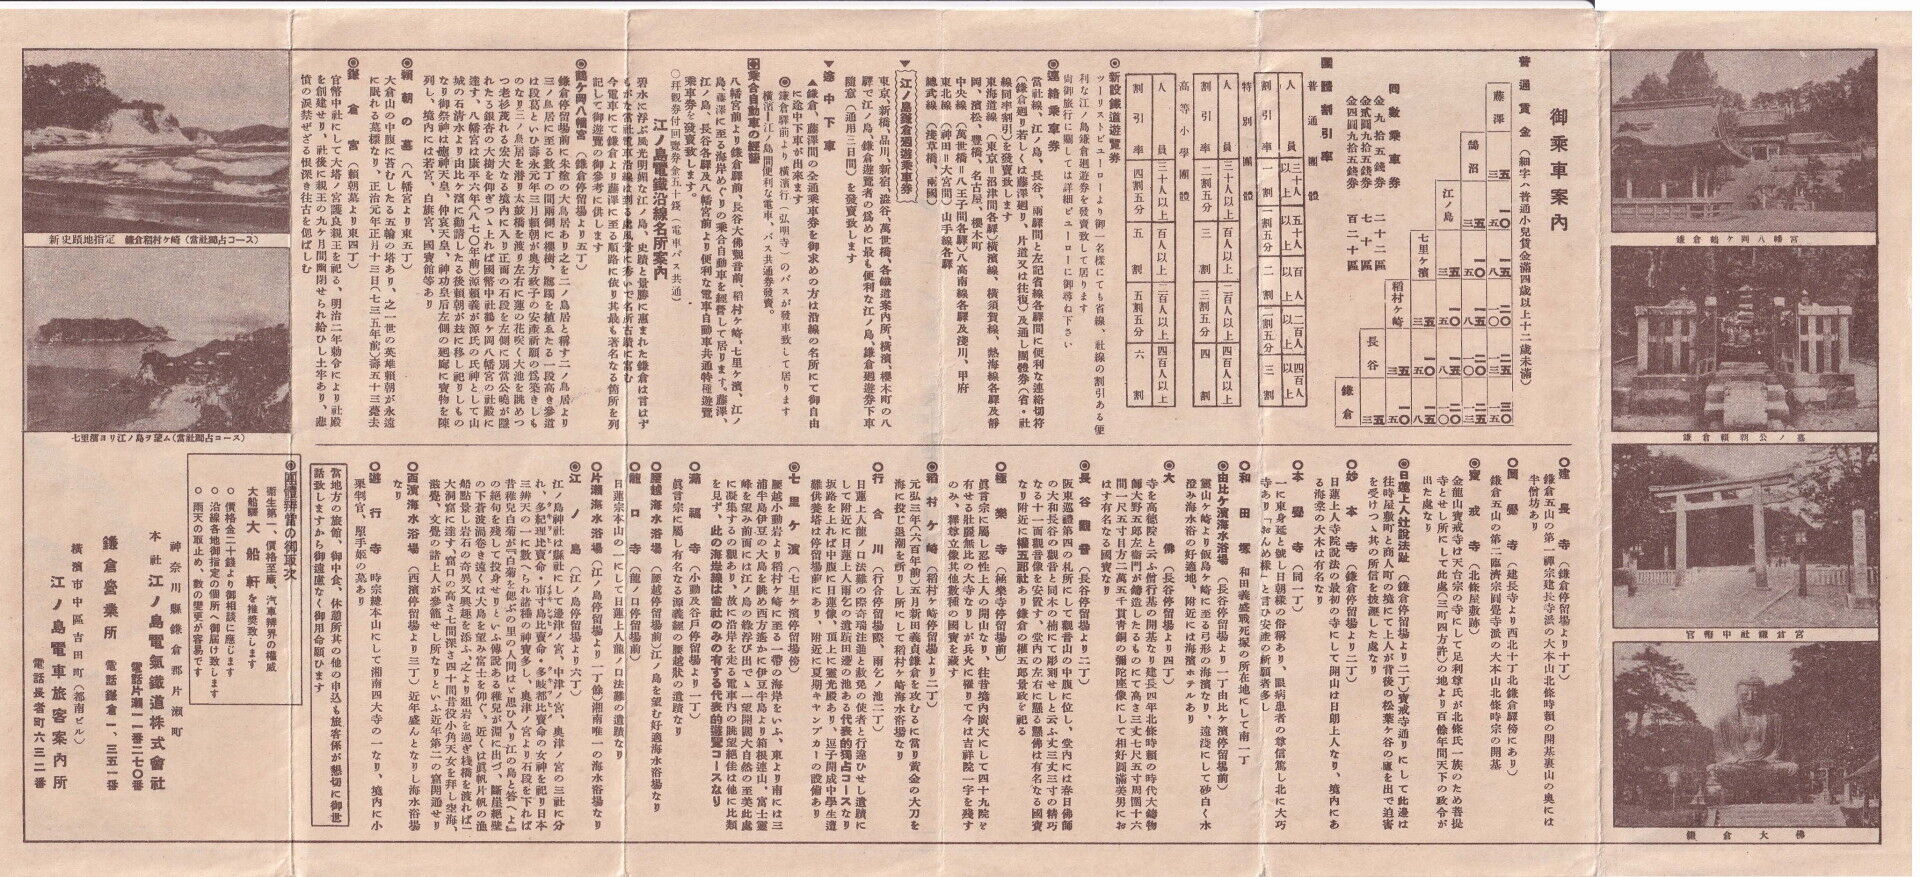 鎌倉鶴ケ岡八幡宮
鎌倉頼朝公ノ墓
官幣中社鎌倉宮
鎌倉大佛
御乘車案內
普通賃金(細字ハ普通小兒賃金滿四歲以上十二歲未滿)
藤澤
鵠沼
江ノ島
七里ケ濱
稻村ケ崎
長谷
鎌倉
回數乘車券
金九拾五錢券 二十二區
金貳圓九拾五錢券 七十區
金四圓九拾五錢券 百二十區
團體割引率
普通團體
人員 三十人以上 五十人以上 百人以上 二百人以上 四百人以上
割引率 一割 一割五分 二割 二割五分 三割
特別團體
人員 三十人以上 百人以上 二百人以上 四百人以上
割引率 二割五分 三割 三割五分 四割
高等小學團體
人員 三十人以上 百人以上 二百人以上 四百人以上
割引率 四割五分 五割 五割五分 六割
◎新設鐵道遊覽券
ツーリストビューローより御一名樣にても省線、社線の割引ある便
利な江ノ島鎌倉廻遊券を發賣致して居ります
尙御旅行に關しては詳細ビューローに御尋ね下さい
◎連絡乘車券
當社線、江ノ島、長谷、兩驛間と左記省線各驛間に便利な連絡切符
(鎌倉廻り若しくは藤澤廻り、片道又は往復)及通し團體券(省・社
線同率割引)を發賣致します
東海道線(東京=沼津間各驛)橫濱線、橫須賀線、熱海線各驛及靜
岡、濱松、豐橋、名古屋、櫻木町
中央線(萬世橋=八王子間各驛)八高南線各驛及淺川、甲府
東北線(神田=大宮間)山手線各驛
總武線(淺草橋、兩國)
▼江ノ島鎌倉廻遊乘車券
東京、新橋、品川、新宿、澁谷、萬世橋、各鐵道案內所、橫濱、櫻木町の八
驛で江ノ島、鎌倉遊覽者の爲めに最も便利な江ノ島、鎌倉廻遊券下車
隨意(通用三日間)を發賣致します
▼途中下車
▲鎌倉、藤澤間の全通乘車券を御求めの方は沿線の名所にて御自由
に途中下車が出來ます
◉鎌倉驛前より橫濱行(弘明寺)のバスが發車致して居ります
橫濱—江ノ島間便利な電車、バス共通券發賣。
◎乘合自動車の經營
八幡宮前より鎌倉驛前、長谷大佛觀音前、稻村ケ崎、七里ケ濱、江ノ
島、藤澤に至る海岸めぐりの乘合自動車を經營して居ります。藤澤、
江ノ島、長谷各驛及八幡宮前より便利な電車自動車共通特種遊覽
乘車券を發賣致します。
○拜觀券付回覽券金五十錢(電車バス共通)
江ノ島電鐵沿線名所案內
碧水に浮ぶ風光明媚な江ノ島、史蹟と景勝に惠まれた鎌倉は言はず
もがな當社電車沿線は到る處風景に秀いで名所古蹟に富む
今電車にて鎌倉より藤澤に至る順路に依り其最も著名なる箇所を列
記して御遊覽の御參考に供します
◎鶴ケ岡八幡宮(鎌倉停留場より五丁)
鎌倉停留場前に朱塗の大鳥居あり之を二ノ鳥居と稱す二ノ鳥居より
三ノ鳥居に至る數丁の間兩側に櫻樹、躑躅を植ゑたる一段高き參道
は段葛といひ壽永元年三月賴朝が奧方政子の安產祈願の爲築きしも
のなり三ノ鳥居を潛り太鼓橋を渡り左右に蓮の花咲く大池を眺めつ
つ老杉茂れる宏大なる境內に入り正面の石段を左側に別當公曉が隱
れたる銀杏の大樹を仰ぎつゝ上れば國幣中社鶴ケ岡八幡宮の社殿に
達す、八幡宮は康平六年(八七〇年前)源賴義が源氏の氏神として山
城の石淸水より由比ケ濱に勸請したる後賴朝が玆に移し祀りしもの
なり御祭神は應神天皇、仲哀天皇、神功皇后左側の廻廊に寶物を陳
列し、境內には若宮、白旗宮、國寶館等あり
◎賴朝の墓(八幡宮より東五丁)
大倉山の中腹に苔むしたる五輪の塔あり、之一世の英雄賴朝が永遠
に眠れる墓標なり、正治元年正月十三日(七三五年前)壽五十三薨去
◎鎌倉宮(賴朝墓より東四丁)
官幣中社にして大塔ノ宮護良親王を祀る、明治二年勅令により社殿
を創建せり、社後に親王の九ケ月間幽閉せられ給ひし土牢あり、悲
憤の淚禁ぜざる恨深き往古を偲ばしむ
◎建長寺(鎌倉停留場より十丁)
鎌倉五山の第一禪宗建長寺派の大本山北條時賴の開基裏山の奧には
半僧坊あり
◎圓覺寺(建長寺より西北十丁北鎌倉驛傍にあり)
鎌倉五山の第二臨濟宗圓覺寺派の大本山北條時宗の開基
◎寶戒寺(北條屋敷跡)
金龍山寶戒寺は天台宗の寺にして足利尊氏が北條氏一族のため菩提
寺とせし所にして此處(三町四方許)の地より百餘年間天下の政令が
出た處なり
◎日蓮上人辻說法趾(鎌倉停留場より二丁)寶戒寺通りにして此邊は
往時屋敷町と商人町の境にて上人が背後の松葉ケ谷の廬を出で迫害
を受けつゝ其の所信を披瀝した處なり
◎妙本寺(鎌倉停留場より二丁)
日蓮上人寺院說法の最初の寺にして開山は日朗上人なり、境內にあ
る海棠の大木は有名なり
◎本覺寺(同一丁)
一に東身延と號し日朝樣の俗稱あり、眼病患者の尊信篤し北に大巧
寺あり「おんめ樣」と言ひ安產の祈願者多し
◎和田塚 和田義盛戰死塚の所在地にして南一丁
◎由比ケ濱海水浴場(長谷停留場より一丁由比ケ濱停留場前)
靈山ケ崎より飯島ケ崎に至る弓形の海濱なり、遠淺にして砂白く水
澄み海水浴の好適地、附近には海濱ホテルあり
◎大佛(長谷停留場より四丁)
寺を高德院と云ふ僧行基の開基なり建長四年北條時賴の時代大鑄物
師大野五郎左衛門が鑄造したるものにて高さ三丈七尺五寸周圍十六
間一尺五寸目方二萬五千貫靑銅の彌陀座像にして相好圓滿美男にお
はす有名なる國寶なり
◎長谷觀音(長谷停留場より二丁)
阪東巡禮第四の札所にして觀音山の中腹に位し、堂內には春日佛師
の大和長谷の觀音と同木の楠にて彫刻せしと云ふ丈三丈三寸の精巧
なる十一面觀音像を安置す、堂內の左右に懸る懸佛は有名なる國寶
なり附近に權五郎社あり鎌倉の權五郎景政を祀る
◎極樂寺(極樂寺停留場前)
眞言宗に屬し忍性上人の開山なり、往昔境內廣大にして四十九院を
有せる壯嚴無比の大寺なりしが兵火に罹りて今は吉祥院一字を殘す
のみ、釋尊立像其他數種の國寶を藏す
◎稻村ケ崎(稻村ケ崎停留場より二丁)
元弘三年(六百年前)五月新田義貞鎌倉を攻むるに當り黃金の大刀を
海に投じ退潮を祈りし所にして稻村ケ崎海水浴場なり
◎行合川(行合停留場際、雨乞ノ池二丁)
日蓮上人龍ノ口法難の際奇瑞注進と赦免の使者と行逢ひせし遺蹟に
して附近に日蓮上人雨乞の遺蹟田邊の池ある代表的獨占コースなり
坂路を上れば中腹に日蓮像、頂上に靈光殿あり、逗子開成中學生遭
難供養塔は停留場前にあり、附近に夏期キャンプカーの設備あり
◎七里ケ濱(七里ケ濱停留場傍)
腰越小動岩より稻村ケ崎に至る一帶の海岸をいふ、東より南には三
浦半島伊豆の大島を眺め西方遙かに伊豆半島より箱根連山、富士靈
峰を望み前面には江ノ島の綠浮び出でゝ一望開闊大自然の至美此處
に凝集するの觀あり、故に沿岸を走る電車內の眺望絕佳は他に比類
を見ず、此の海岸線は當社のみの有する代表的遊覽コースなり
◎滿福寺(小動及谷戶停留場前)
眞言宗に屬し有名なる源義經の腰越狀の遺蹟なり
◎腰越海水浴場(腰越停留場前)江ノ島を望む好適海水浴場なり
◎龍口寺(龍ノ口停留場前)
日蓮宗本山の一にして日蓮上人龍ノ口法難の遺蹟なり
◎片瀨海水浴場(江ノ島停留場より一丁餘)湘南唯一の海水浴場なり
◎江ノ島(江ノ島停留場より六丁)
江ノ島神社は縣社にして邊津ノ宮、中津ノ宮、奧津ノ宮の三社に分
れ、多紀理比賣命・市寸島比賣命・多岐都比賣命の女神を祀り日本
三辨天の一に數へられ諸種の神寶多し、奧津ノ宮より石段を下れば
昔稚兒白菊の『白菊を偲ぶの里の人間はゞ思ひ入り江の島と答へよ』
の絕句を殘して投身せりといふ傳說ある稚兒が淵に出づ、斷崖絕壁
の下蒼波渦卷き遠くは大島を望み富士を仰ぐ。近くは眞帆片帆の漁
船點景し岩石の奇異又興趣を添ふ、之より俎岩を過ぎ棧橋を渡れば一
大洞窟に達す、窟口の高さ七間深さ四十間昔役小角天女を拜し空海、
慈覺、文覺の諸上人が參籠せし所なりといふ近年第二の窟開通せり
◎西濱海水浴場(西濱停留場より三丁)近年盛んとなりし海水浴場
なり
◎遊行寺 時宗總本山にして湘南四大寺の一なり、境內に小
栗判官、照手姬の墓あり
當地方の旅館、御中食、休憩所其の他の申込も旅客係が懇切に御世
話致しますから御遠慮なく御用命願ひます
◎團體辨當の御取次
衞生第一、價格至廉、汽車辨界の權威
大船驛 大船軒を推奬致します
○價格金二十錢より御相談に應じます
○沿線各地御指定の個所へ御屆け致します
○雨天の取止め、數の變更が容易です
神奈川縣鎌倉郡片瀨町
本社 江ノ島電氣鐵道株式會社
電話片瀨一二番二七〇番
鎌倉營業所 電話鎌倉一、三五一番
橫濱市中區吉田町(都南ビル)
江ノ島電車旅客案內所
電話長者町六三二一番
新史蹟地指定 鎌倉稻村ケ崎(當社獨占コース)
七里濱ヨリ江ノ島ヲ望ム(當社獨占コース)